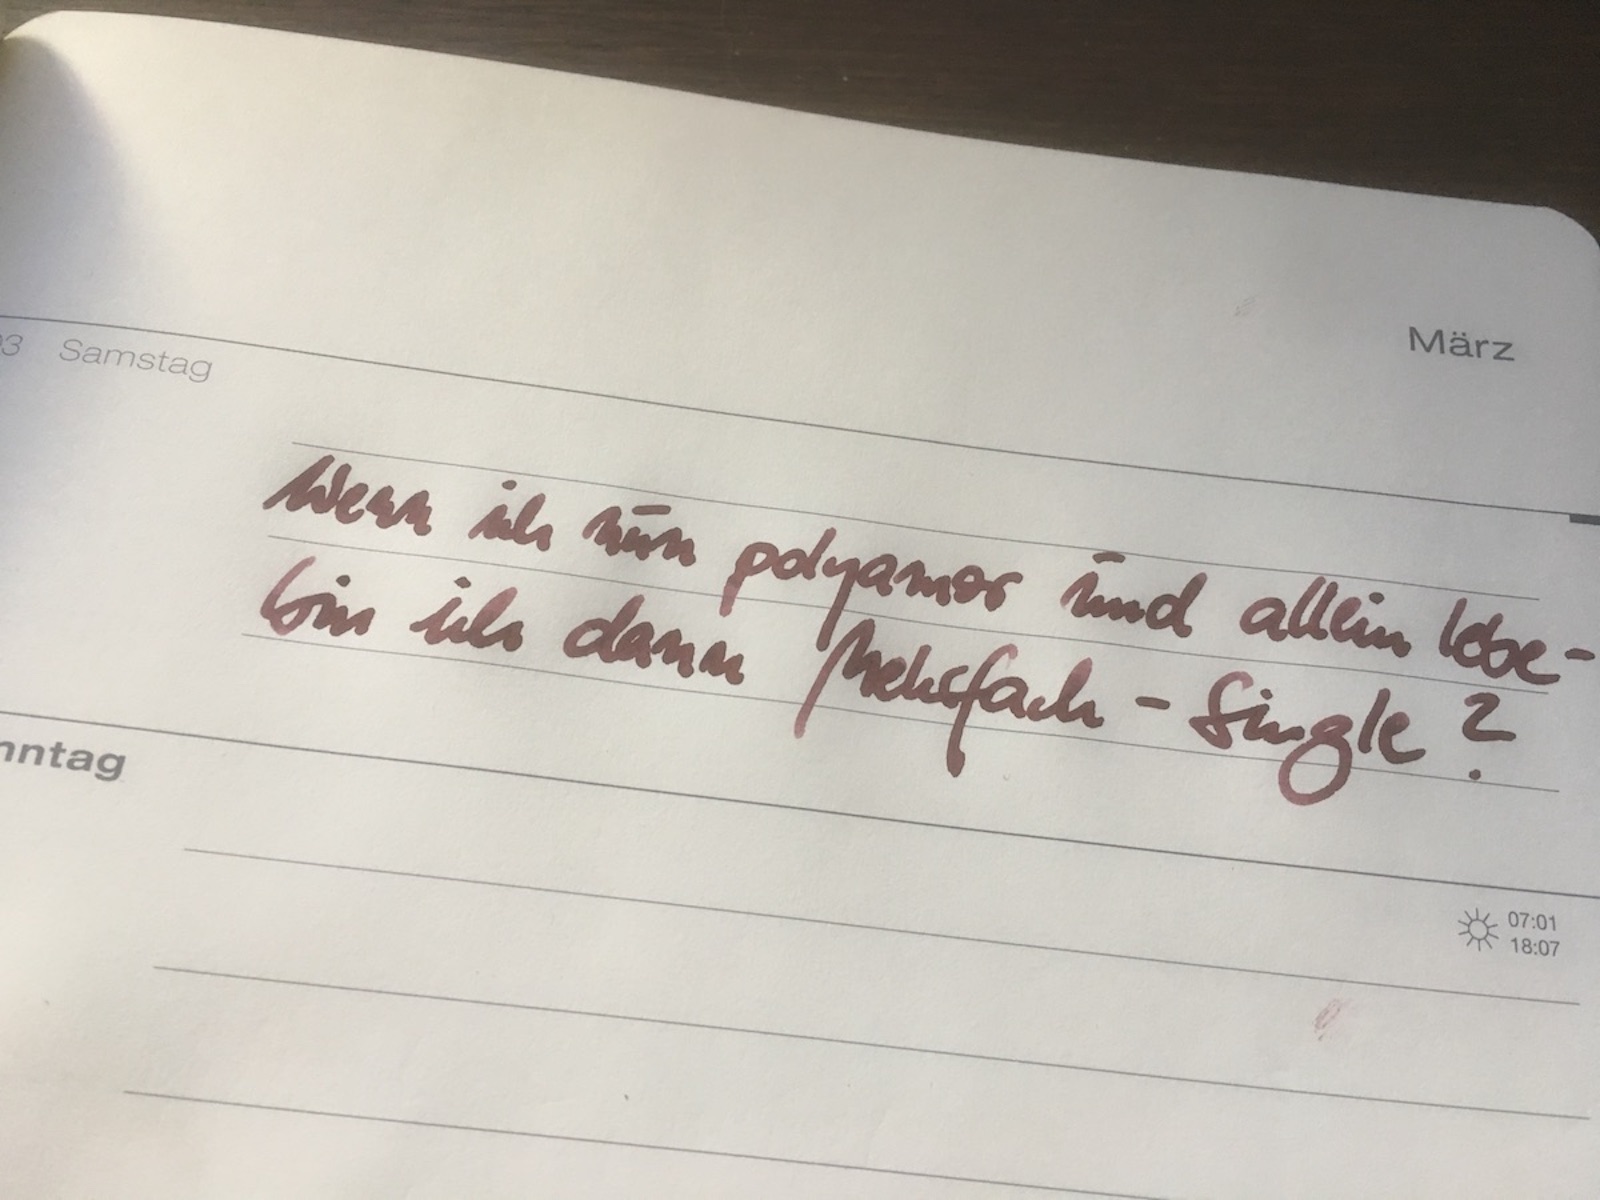 März
03 Samstag
Wenn ich nun polyamor und allein lebe -
bin ich dann Mehrfach - Single ?
nntag
07:01
18:07